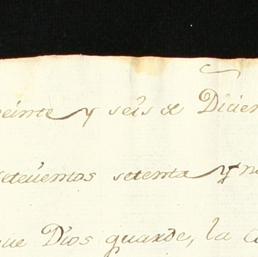 veinte y seis de Diciem
setecientos setenta y nu
que Dios guarde, la C